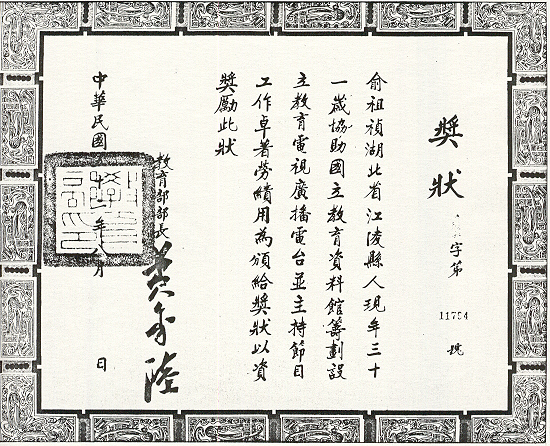 獎狀
字第11754號
俞祖禎湖北省江陵縣人現年三十
一歲協助國立教育資料館籌劃設
立教育電視廣播電台並主持節目
工作卓著勞績用為頒給獎狀以資
獎勵此狀
教育部部長
黃季陸
中華民國
年八月
日